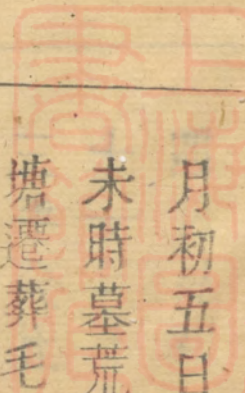 月初五日
未時墓荒
塘遷葬毛